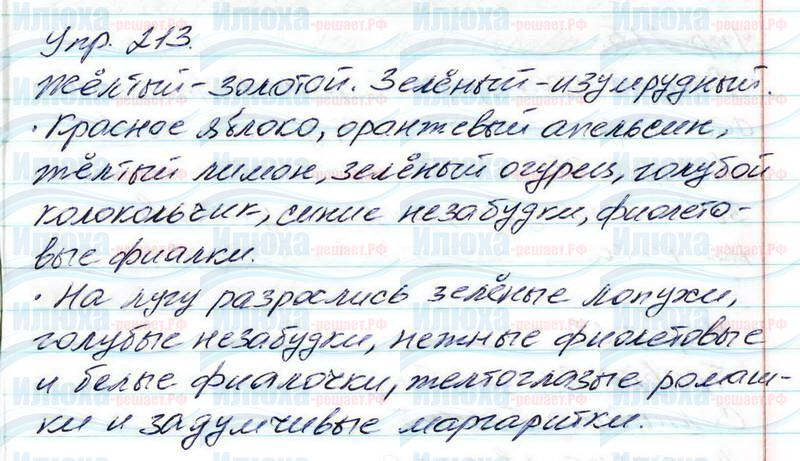 Упр. 213.
Жёлтый-золотой. Зелёный-изумрудный.
· Красное яблоко, оранжевый апельсин,
жёлтый лимон, зелёный огурец, голубой
колокольчик, синие незабудки, фиолето-
вые фиалки.
· На лугу разрослись зелёные лопухи,
голубые незабудки, нежные фиолетовые
и белые фиалочки, желтоглазые ромаш-
ки и задумчивые маргаритки.